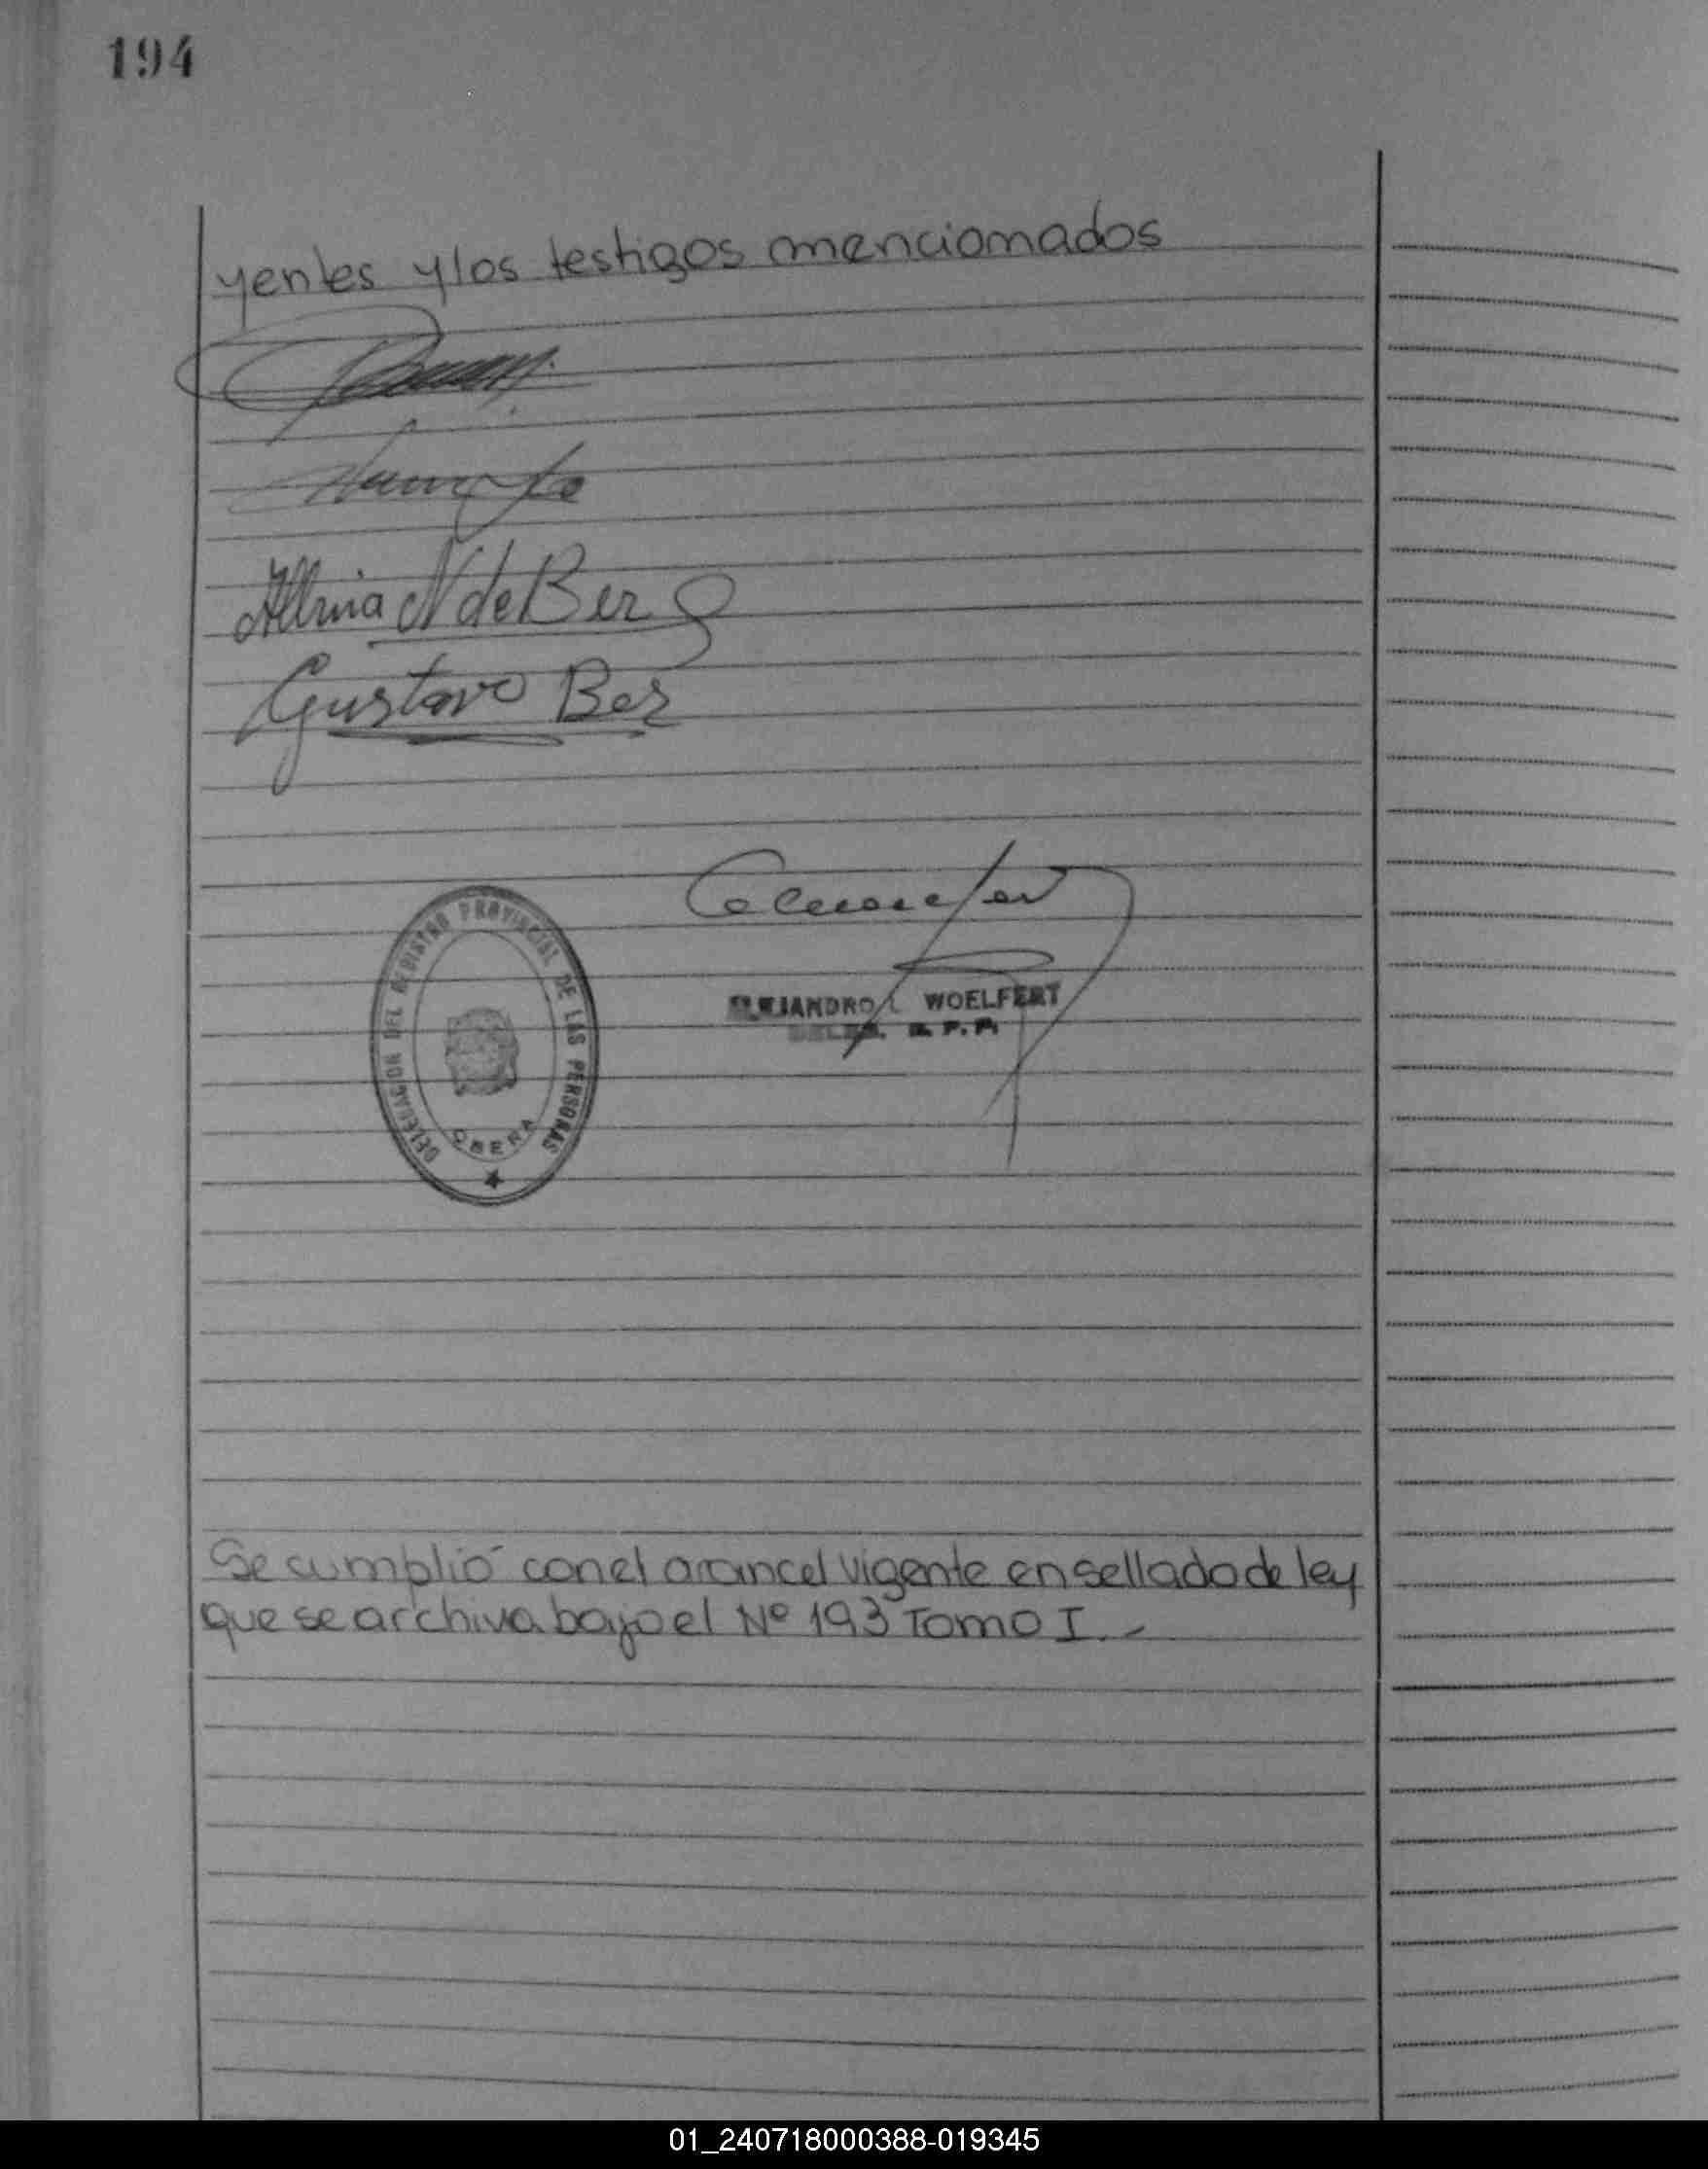 194
yentes y los testigos mencionados
N de Ber
Gustavo Ber
DELEGACION DEL REGISTRO PROVINCIAL DE LAS PERSONAS
OBERA
ALEJANDRO L WOELFERT
R. P. P.
Se cumplió con el arancel vigente en sellado de ley
que se archiva bajo el Nº 193 Tomo I.-
01_240718000388-019345